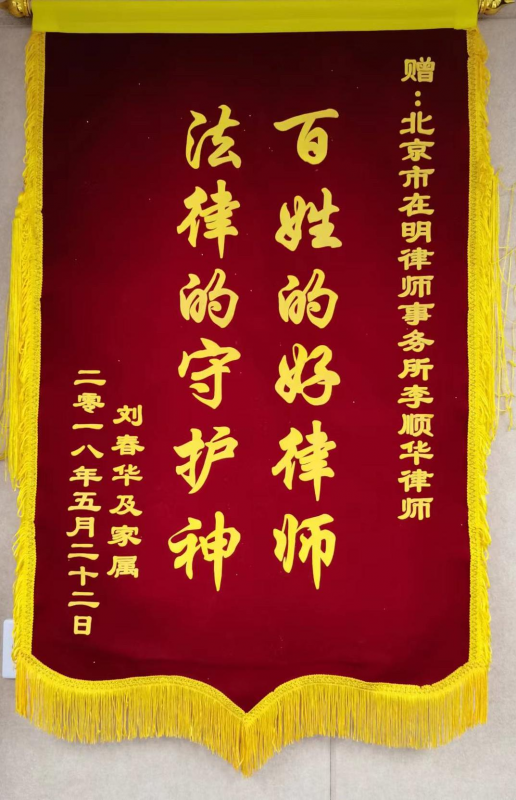 赠：北京市在明律师事务所李顺华律师
百姓的好律师
法律的守护神
刘春华及家属
二零一八年五月二十二日